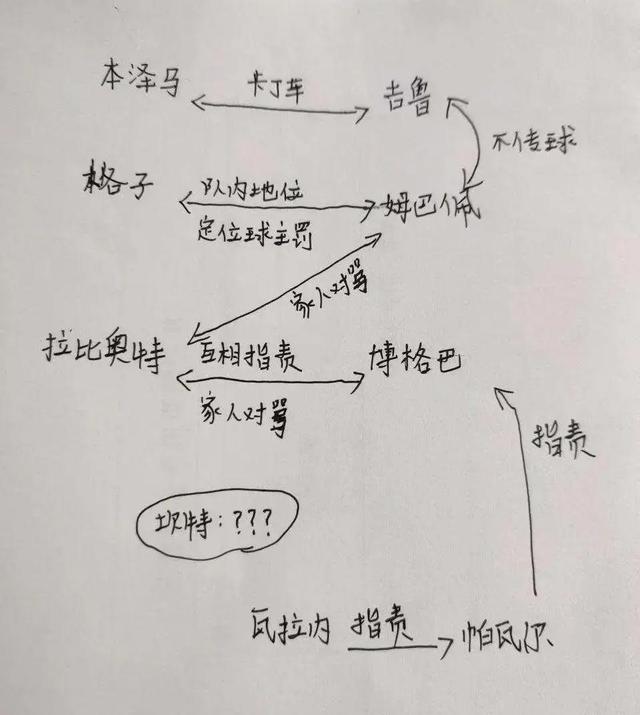 本泽马 卡丁车 吉鲁
不传球
格子 队内地位 姆巴佩
定位球主罚
家人对骂
拉比奥特 互相指责 博格巴
家人对骂
指责
坎特：???
瓦拉内 指责 帕瓦尔